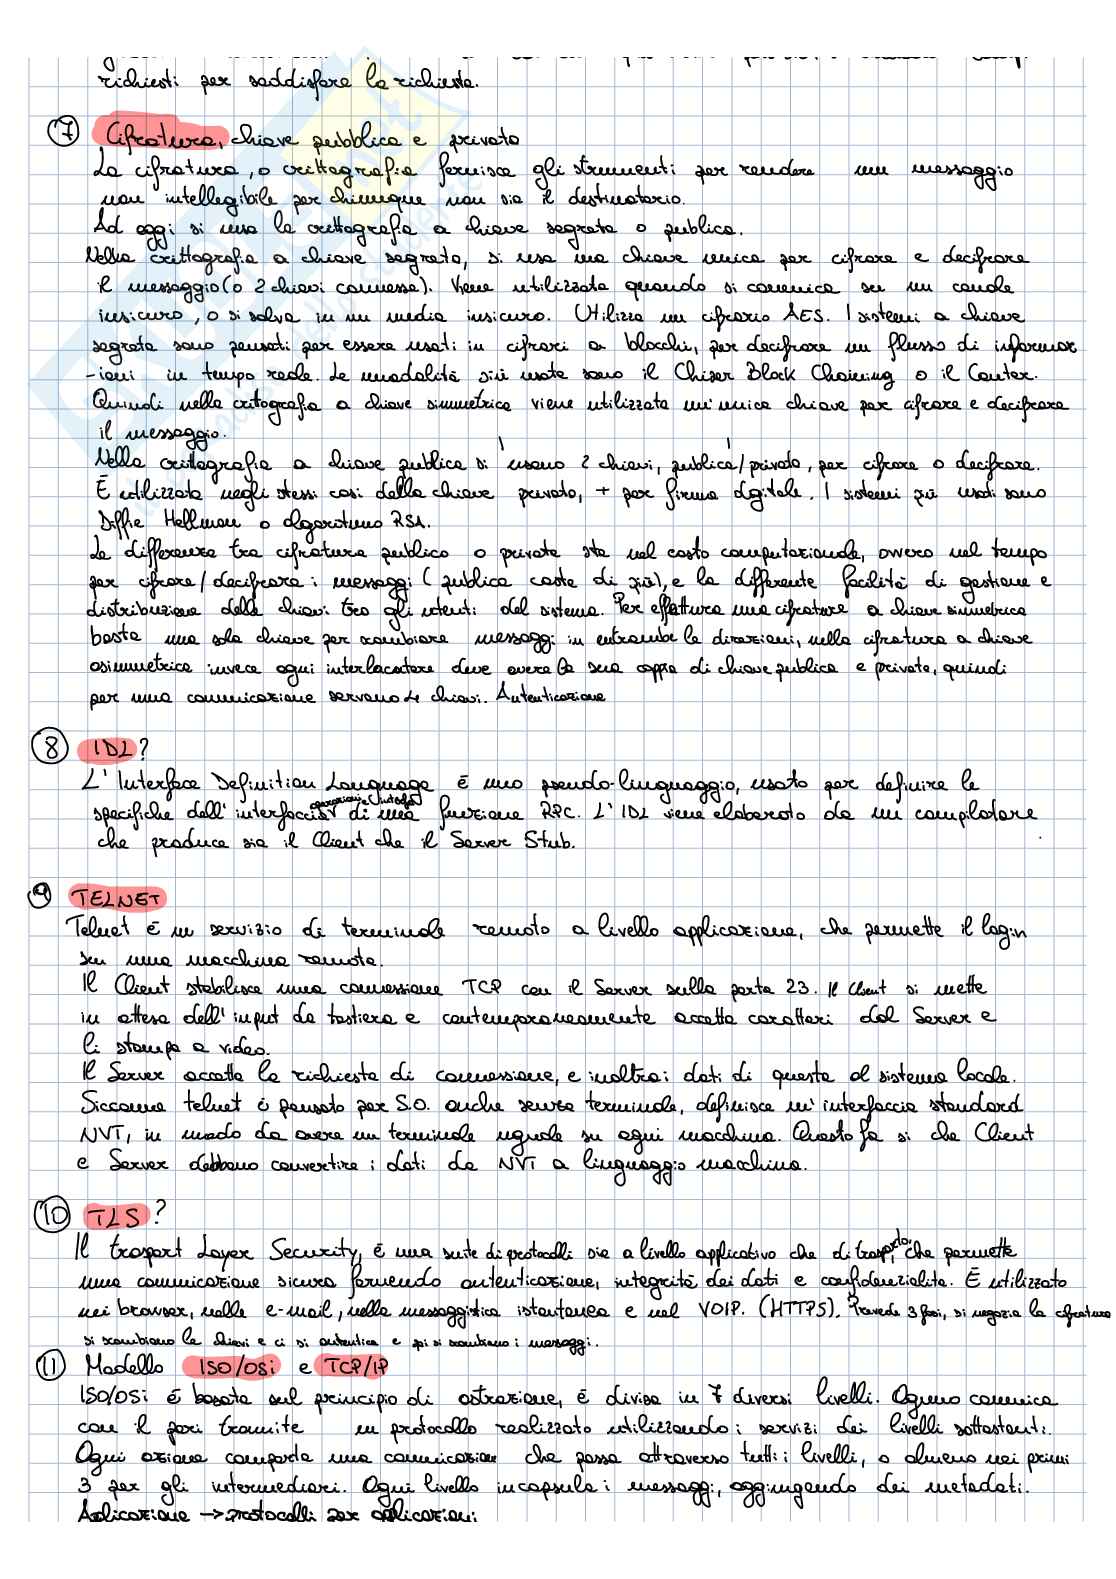 richiesti per soddisfare la richiesta.
7 Cifratura, chiave pubblica e privata
La cifratura, o crittografia fornisce gli strumenti per rendere un messaggio
non intellegibile per chiunque non sia il destinatario.
Ad oggi si usa la crittografia a chiave segreta o publica.
Nella crittografia a chiave segreta, si usa una chiave unica per cifrare e decifrare
il messaggio (o 2 chiavi connesse). Viene utilizzata quando si comunica su un canale
insicuro, o si salva in un media insicuro. Utilizza un cifrario AES. I sistemi a chiave
segreta sono pensati per essere usati in cifrari a blocchi, per decifrare un flusso di informaz
-ioni in tempo reale. Le modalità più usate sono il Chiper Block Chaining o il Counter.
Quindi nella crittografia a chiave simmetrica viene utilizzata un'unica chiave per cifrare e decifrare
il messaggio.
Nella crittografia a chiave publica si usano 2 chiavi, publica/privata, per cifrare o decifrare.
È utilizzata negli stessi casi della chiave privata, + per firma digitale. I sistemi più usati sono
Diffie Hellman o algoritmo RSA.
La differenza tra cifratura publica o privata sta nel costo computazionale, ovvero nel tempo
per cifrare/decifrare i messaggi (publica costa di più), e la differente facilità di gestione e
distribuzione delle chiavi tra gli utenti del sistema. Per effettura una cifratura a chiave simmetrica
basta una sola chiave per scambiare messaggi in entrambe le direzioni, nella cifratura a chiave
asimmetrica invece ogni interlocutore deve avere la sua coppia di chiave publica e privata, quindi
per una comunicazione servono 4 chiavi. Autenticazione
8 IDL?
L'Interface Definition Language è uno pseudo-linguaggio, usato per definire le
specifiche dell'interfaccia di una funzione RPC. L'IDL viene elaborato da un compilatore
che produce sia il Client che il Server Stub.
9 TELNET
Telnet è un servizio di terminale remoto a livello applicazione, che permette il login
su una macchina remota.
Il Client stabilisce una connessione TCP con il Server sulla porta 23. Il Client si mette
in attesa dell'input da tastiera e contemporaneamente accetta caratteri dal Server e
li stampa a video.
Il Server accetta la richiesta di connessione, e inoltra i dati di questa al sistema locale.
Siccome telnet è pensato per S.O. anche senza terminale, definisce un'interfaccia standard
NVT, in modo da avere un terminale uguale su ogni macchina. Questo fa si che Client
e Server debbano convertire i dati da NVT a linguaggio macchina.
10 TLS?
Il trasport Layer Security, è una suite di protocolli sia a livello applicativo che di trasporto, che permette
una comunicazione sicura fornendo autenticazione, integrità dei dati e confidenzialità. È utilizzato
nei browser, nelle e-mail, nella messaggistica istantanea e nel VOIP. (HTTPS). Prevede 3 fasi, si negozia la cifratura
si scambiano le chiavi e ci si autentica e poi si scambiano i messaggi.
11 Modello ISO/OSi e TCP/IP
ISO/OSi è basato sul principio di astrazione, è diviso in 7 diversi livelli. Ognuno comunica
con il pari tramite un protocollo realizzato utilizzando i servizi dei livelli sottostanti.
Ogni azione comporta una comunicazione che passa attraverso tutti i livelli, o almeno nei primi
3 per gli intermediari. Ogni livello incapsula i messaggi, aggiungendo dei metadati.
Applicazione → protocolli per applicazioni